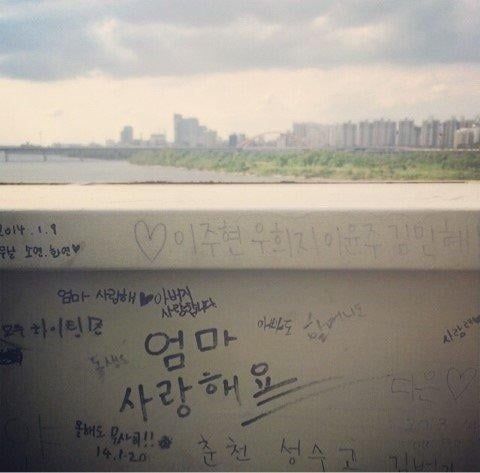 2014.1.9
소연.희연♥
♡이주현 우희지 이윤주 김민혜
엄마 사랑해♥아버지
사랑합니다.
모두 화이팅
아빠도 할머니도
동생도
엄마
사랑해요
다은♡
올해도 무사히!!
14.1.20
춘천 성수고